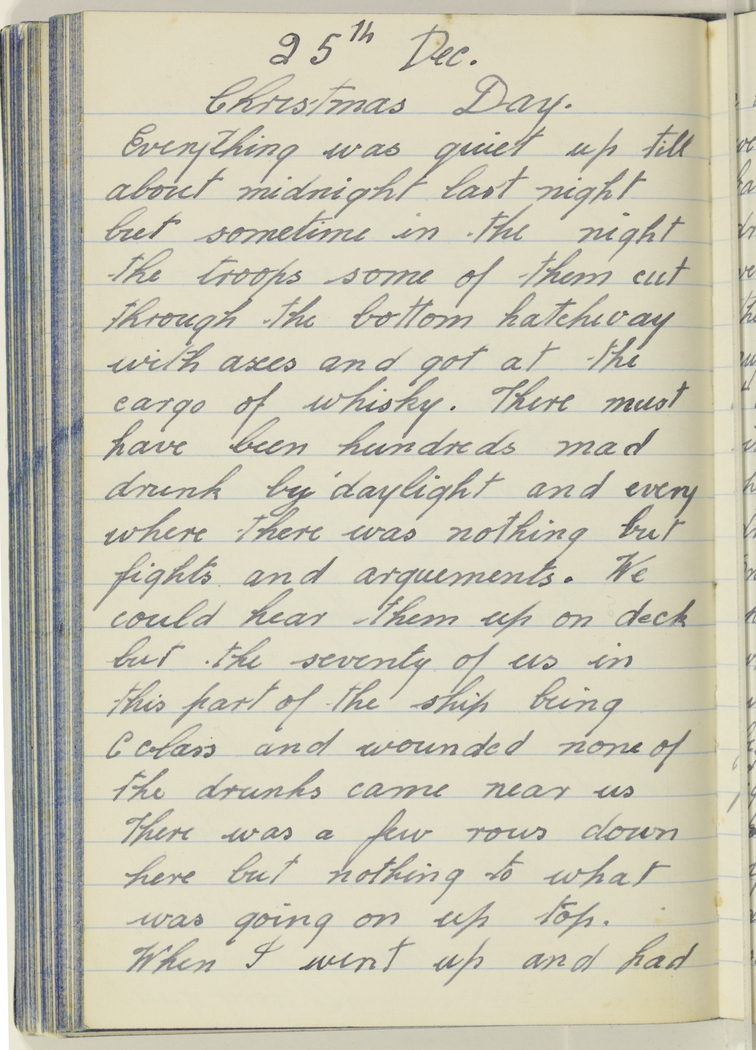 25th Dec.
Christmas Day.
Everything was quiet up till
about midnight last night
but sometime in the night
the troops some of them cut
through the bottom hatchway
with axes and got at the
cargo of whisky. There must
have been hundreds mad
drunk by daylight and every
where there was nothing but
fights and arguements. We
could hear them up on deck
but the seventy of us in
this part of the ship being
C class and wounded none of
the drunks came near us
There was a few rows down
here but nothing to what
was going on up top.
When I went up and had